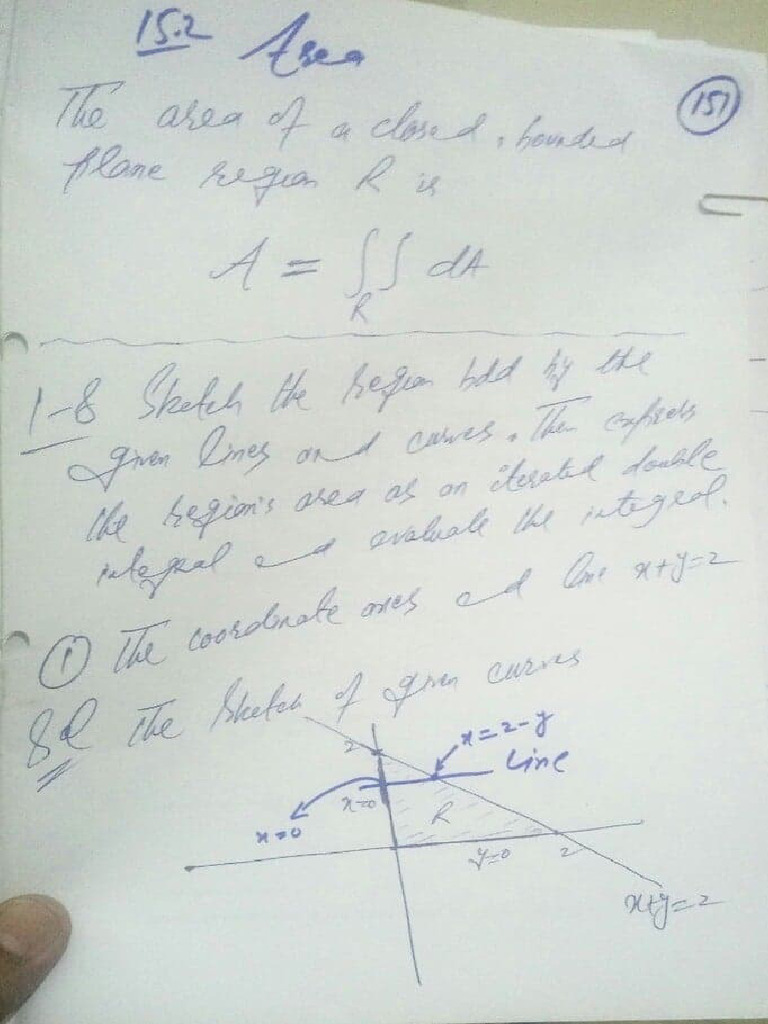 15.2 Area
151
The area of a closed, bounded
plane region R is
A = ∫∫ dA
R
1-8 Sketch the region bdd by the
given lines and curves. Then express
the region's area as an iterated double
integral and evaluate the integral.
① The coordinate axes and line x+y=2
Sol The sketch of given curves
2
x=2-y
Line
x=0
x=0
R
y=0
2
x+y=2